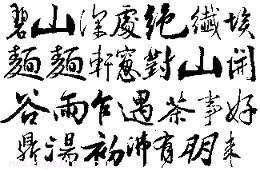 碧山深處絕纖埃
麵麵軒窻對山開
谷雨乍過茶事好
鼎湯初沸有朋來